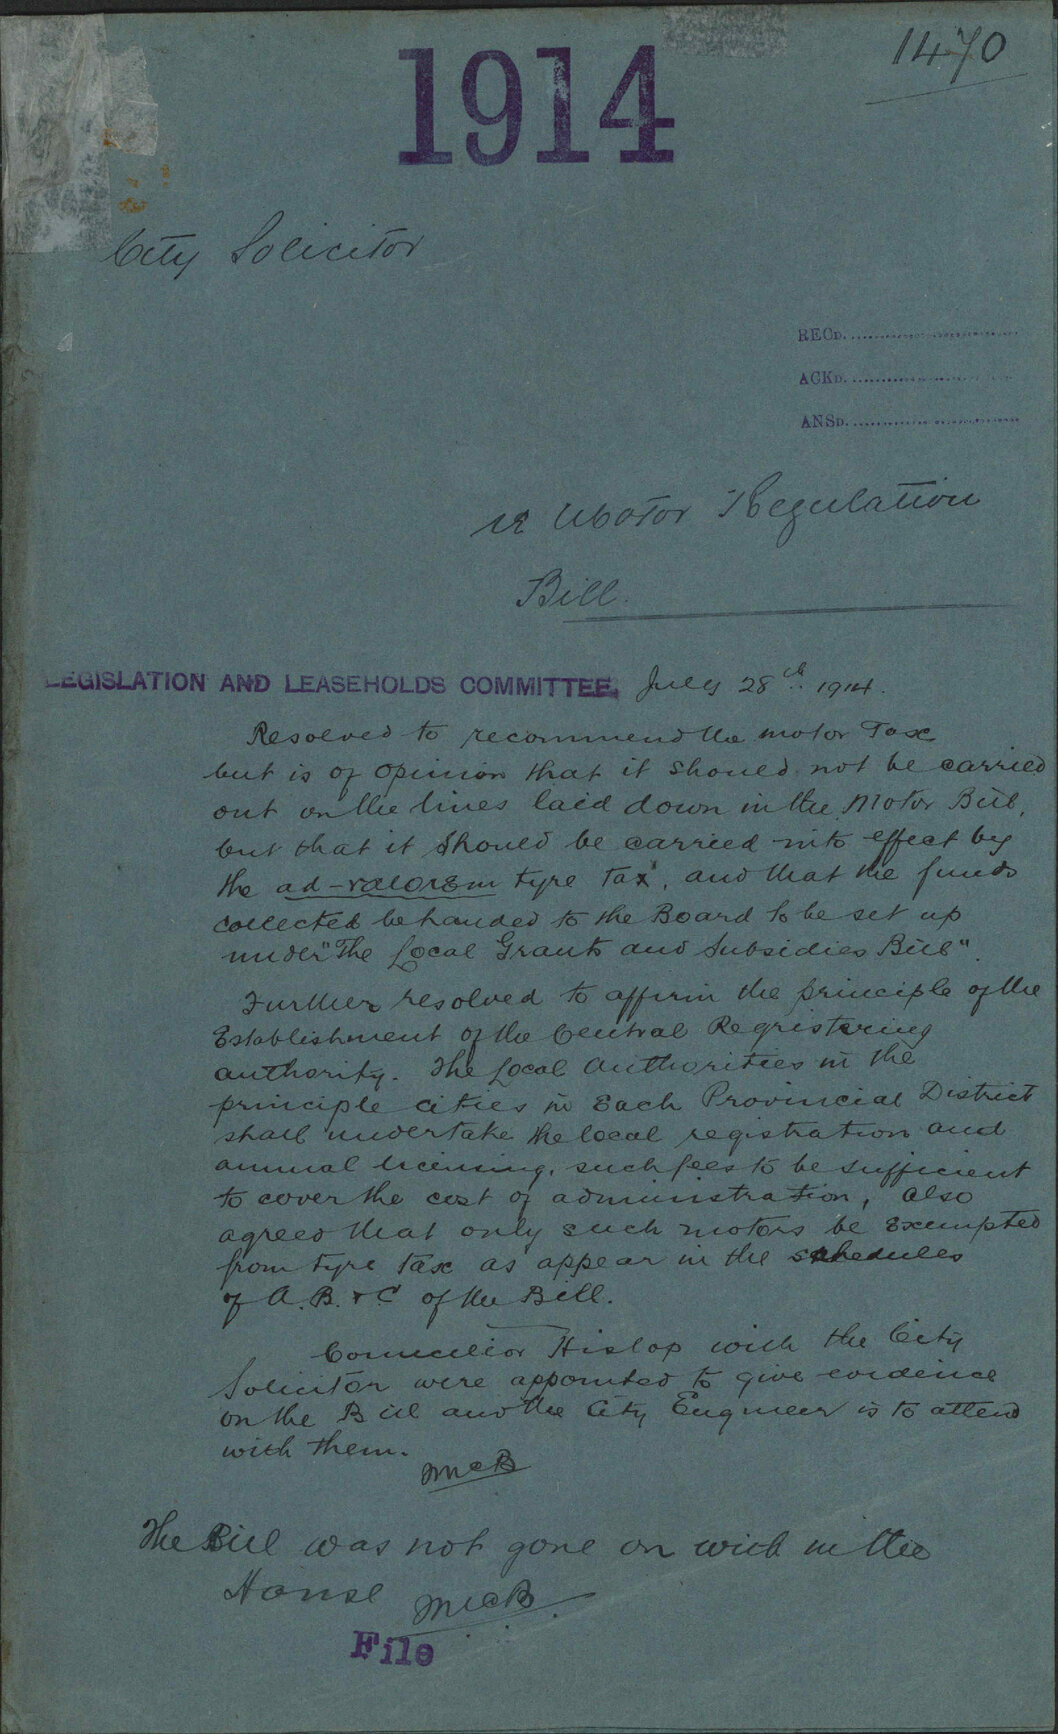 1914
1470
City Solicitor
RECD.
ACKD.
ANSD.
re Motor Regulation
Bill.
LEGISLATION AND LEASEHOLDS COMMITTEE. July 28th 1914.
Resolved to recommend the motor Tax
but is of opinion that it should not be carried
out on the lines laid down in the Motor Bill,
but that it should be carried into effect by
the ad-valorem tyre tax, and that the funds
collected be handed to the Board to be set up
under "The Local Grants and Subsidies Bill".
Further resolved to affirm the principle of the
Establishment of the Central Registering
authority. The Local Authorities in the
principle cities in each Provincial District
shall undertake the local registration and
annual licensing, such fees to be sufficient
to cover the cost of administration, also
agreed that only such motors be exempted
from tyre tax as appear in the schedules
of A. B. & C of the Bill.
Councillor Hislop with the City
Solicitor were appointed to give evidence
on the Bill and the City Engineer is to attend
with them.
McB
The Bill was not gone on with in the
House McB
File